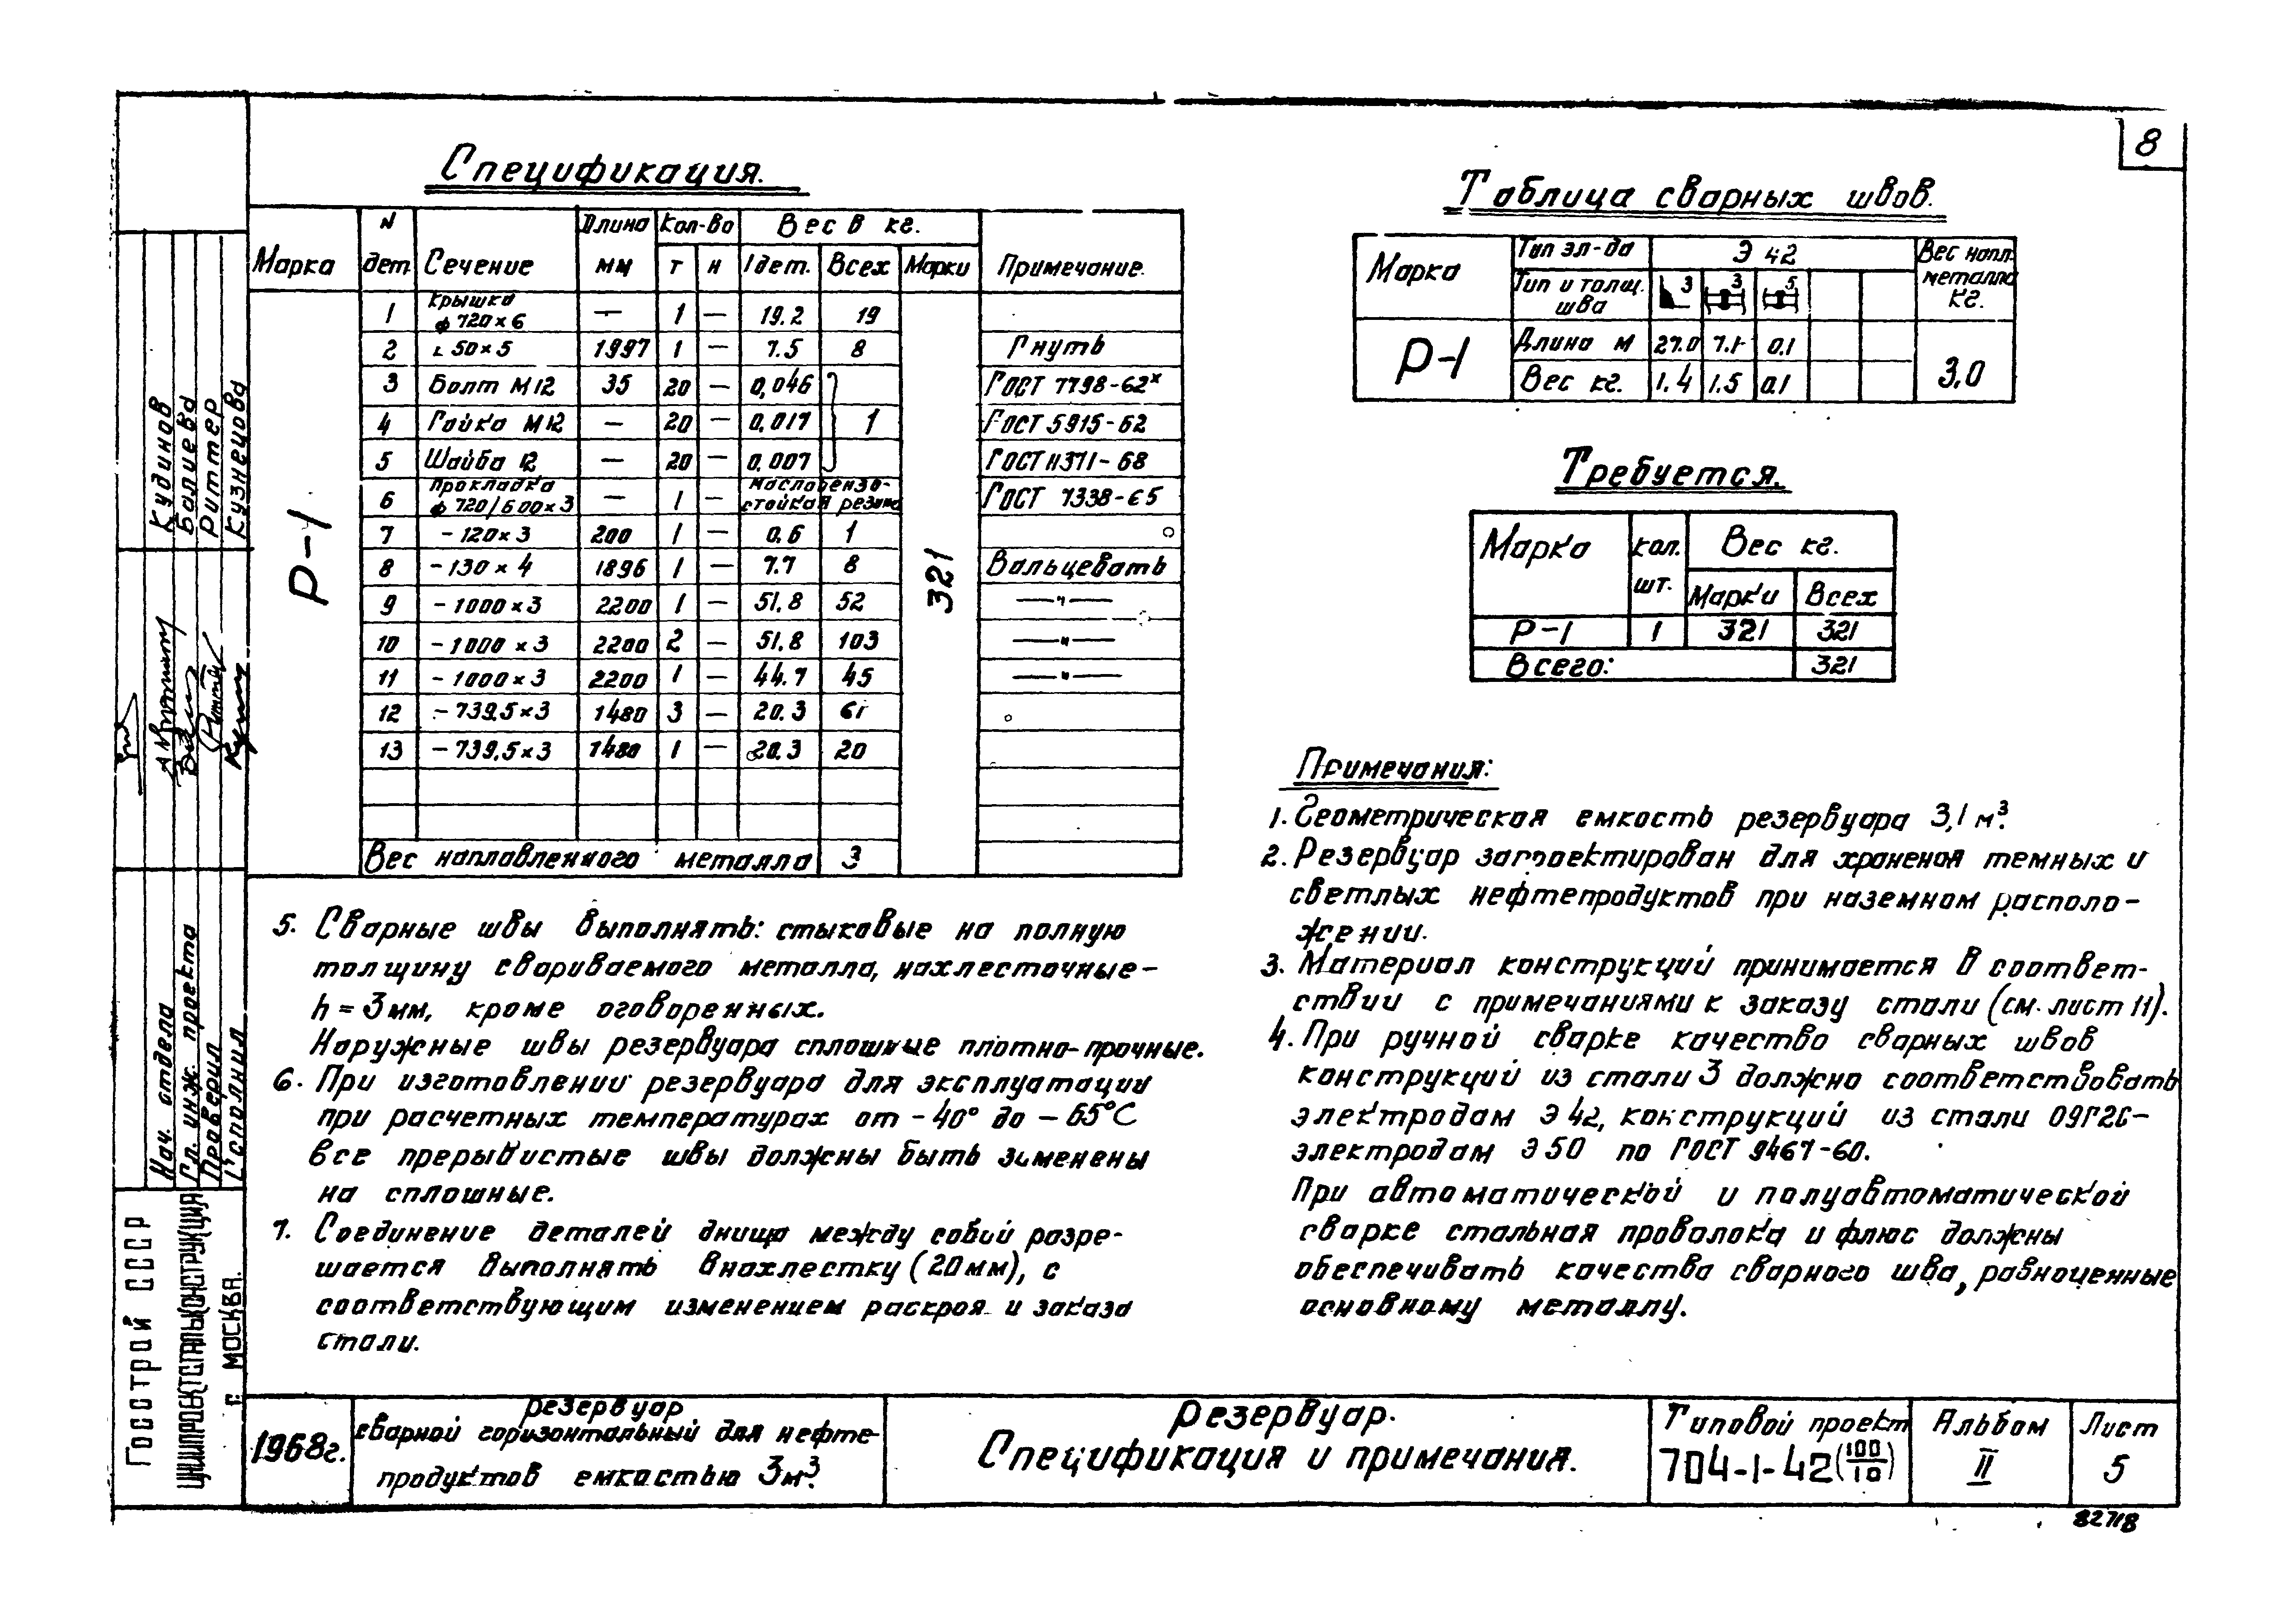 8
Спецификация.
Марка | N дет. | Сечение | Длина мм | Кол-во т | н | Вес в кг. 1 дет. | Всех | Марки | Примечание.
Р-1 | 321
1 | Крышка ф 720×6 | — | 1 | — | 19.2 | 19
2 | ∟ 50×5 | 1997 | 1 | — | 7.5 | 8 | Гнуть
3 | Болт М12 | 35 | 20 | — | 0,046 | ГОСТ 7798-62ˣ
4 | Гайка М12 | — | 20 | — | 0,017 | 1 | ГОСТ 5915-62
5 | Шайба 12 | — | 20 | — | 0.007 | ГОСТ 11371-68
6 | Прокладка ф 720/600×3 | — | 1 | — | маслобензо-стойкая резина | ГОСТ 7338-65
7 | -120×3 | 200 | 1 | — | 0.6 | 1
8 | -130×4 | 1896 | 1 | — | 7.7 | 8 | Вальцевать
9 | -1000×3 | 2200 | 1 | — | 51.8 | 52 | —"—
10 | -1000×3 | 2200 | 2 | — | 51.8 | 103 | —"—
11 | -1000×3 | 2200 | 1 | — | 44.7 | 45 | —"—
12 | -739.5×3 | 1480 | 3 | — | 20.3 | 61
13 | -739.5×3 | 1480 | 1 | — | 20.3 | 20
Вес наплавленного металла | 3
Таблица сварных швов.
Марка | Тип эл-да | Э 42 | Вес напл. металла кг.
Тип и толщ. шва | 3 | 3 | 5
Р-1 | Длина м | 27.0 | 7.1 | 0.1 | 3,0
Вес кг. | 1.4 | 1.5 | 0.1
Требуется.
Марка | кол. шт. | Вес кг. Марки | Всех
Р-1 | 1 | 321 | 321
Всего: | 321
Примечания:
1. Геометрическая емкость резервуара 3,1 м³.
2. Резервуар запроектирован для хранения темных и
светлых нефтепродуктов при наземном располо-
жении.
3. Материал конструкций принимается в соответ-
ствии с примечаниями к заказу стали (см. лист 11).
4. При ручной сварке качество сварных швов
конструкций из стали 3 должно соответствовать
электродам Э 42, конструкций из стали 09Г2С-
электродам Э 50 по ГОСТ 9467-60.
При автоматической и полуавтоматической
сварке стальная проволока и флюс должны
обеспечивать качества сварного шва, равноценные
основному металлу.
5. Сварные швы выполнять: стыковые на полную
толщину свариваемого металла, нахлесточные-
h = 3 мм, кроме оговоренных.
Наружные швы резервуара сплошные плотно-прочные.
6. При изготовлении резервуара для эксплуатации
при расчетных температурах от -40° до -65°С
все прерывистые швы должны быть заменены
на сплошные.
7. Соединение деталей днища между собой разре-
шается выполнять внахлестку (20 мм), с
соответствующим изменением раскроя и заказа
стали.
Кудинов
Балиева
Риттер
Кузнецова
Нач. отдела
Гл. инж. проекта
Проверил
Исполнил
Госстрой СССР
ЦНИИПРОЕКТСТАЛЬКОНСТРУКЦИЯ
г. МОСКВА.
1968г.
резервуар
сварной горизонтальный для нефте-
продуктов емкостью 3м³.
Резервуар.
Спецификация и примечания.
Типовой проект
704-1-42(100/10)
Альбом
II
Лист
5
82718